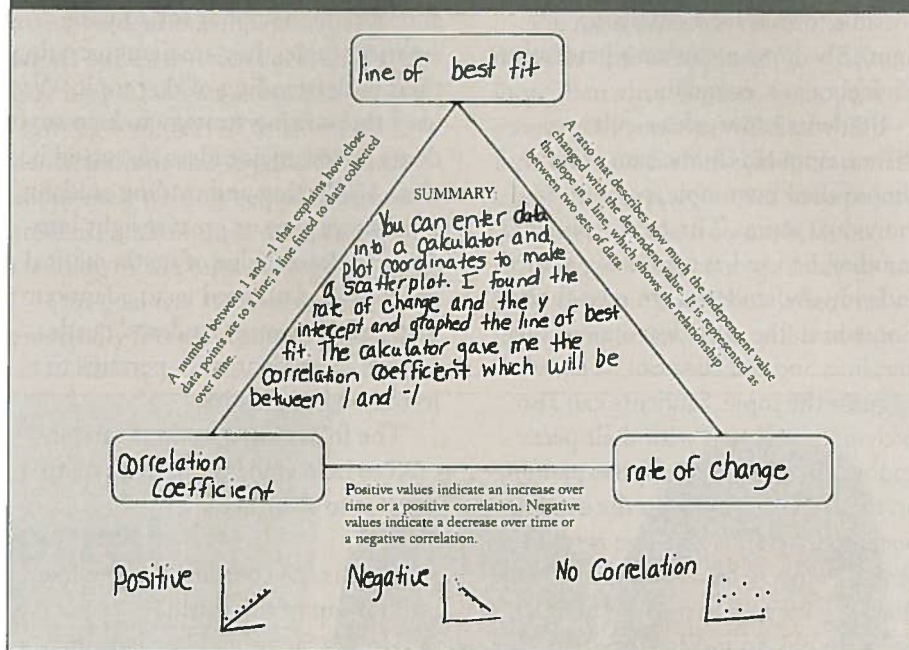 line of best fit
A number between 1 and -1 that explains how close
data points are to being a line fitted to data collected
over time.
A ratio that describes how much the independent value
changed with the dependent value. It is represented as
the slope of a line, which shows the relationship
between two sets of data.
SUMMARY:
You can enter data
into a calculator and
plot coordinates to make
a scatterplot. I found the
rate of change and the y
intercept and graphed the line of best
fit. The calculator gave me the
correlation coefficient which will be
between 1 and -1
Correlation
Coefficient
rate of change
Positive values indicate an increase over
time or a positive correlation. Negative
values indicate a decrease over time or
a negative correlation.
Positive
Negative
No Correlation